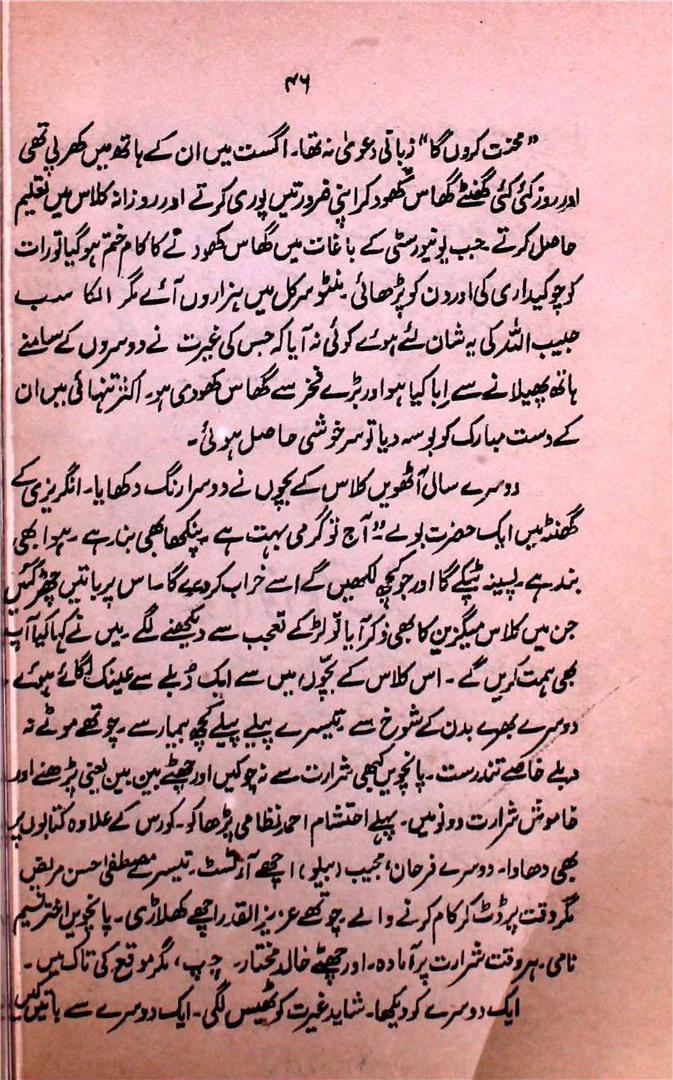 ۴۶
”محنت کروں گا“ زبانی دعویٰ نہ تھا۔ اگست میں ان کے ہاتھ میں کھرپی تھی
اور روز کئی کئی گھنٹے گھاس کھود کر اپنی ضرورتیں پوری کرتے اور روزانہ کلاس میں تعلیم
حاصل کرتے ۔ جب یونیورسٹی کے باغات میں گھاس کھودنے کا کام ختم ہو گیا تو رات
کو چوکیداری کی اور دن کو پڑھائی۔ منٹو سرکل میں ہزاروں آئے مگر المکا سب
حبیب اللہ کی یہ شان لئے ہوئے کوئی نہ آیا کہ جس کی غیرت نے دوسروں کے سامنے
ہاتھ پھیلانے سے ابا کیا ہو اور بڑے فخر سے گھاس کھودی ہو۔ اکثر تنہائی میں ان
کے دست مبارک کو بوسہ دیا تو سرخوشی حاصل ہوئی۔
دوسرے سال آٹھویں کلاس کے بچوں نے دوسرا رنگ دکھایا۔ انگریزی کے
گھنٹہ میں ایک حضرت بولے ”آج تو گرمی بہت ہے ۔ پنکھا بھی بند ہے ۔ ہوا بھی
بند ہے ۔ پسینہ ٹپکے گا اور جو کچھ لکھیں گے اسے خراب کر دے گا۔ اس پر باتیں چھڑ گئیں
جن میں کلاس میگزین کا بھی ذکر آیا تو لڑکے تعجب سے دیکھنے لگے ۔ میں نے کہا کیا آپ
بھی ہمت کریں گے ۔ اس کلاس کے بچوں میں سے ایک دُبلے سے عینک لگائے ہوئے ،
دوسرے بھرے بدن کے شوخ سے ۔ تیسرے پیلے پیلے کچھ بیمار سے ۔ چوتھے موٹے نہ
دبلے خاصے تندرست ۔ پانچویں کبھی شرارت سے نہ چوکیں اور چھٹے بین بین یعنی پڑھنے اور
خاموش شرارت دونوں میں۔ پہلے احتشام احمد نظامی پڑھاکو ۔ کورس کے علاوہ کتابوں پر
بھی دھاوا۔ دوسرے فرحان مجیب (ببلو) اچھے آرٹسٹ ۔ تیسرے مصطفیٰ احسن مریض
مگر وقت پر ڈٹ کر کام کرنے والے ۔ چوتھے عزیز القدر اچھے کھلاڑی۔ پانچویں اختر نسیم
نامی ۔ ہر وقت شرارت پر آمادہ ۔ اور چھٹے خالد مختار۔ چپ، مگر موقع کی تاک میں ۔
ایک دوسرے کو دیکھا۔ شاید غیرت کو ٹھیس لگی ۔ ایک دوسرے سے باتیں کیں